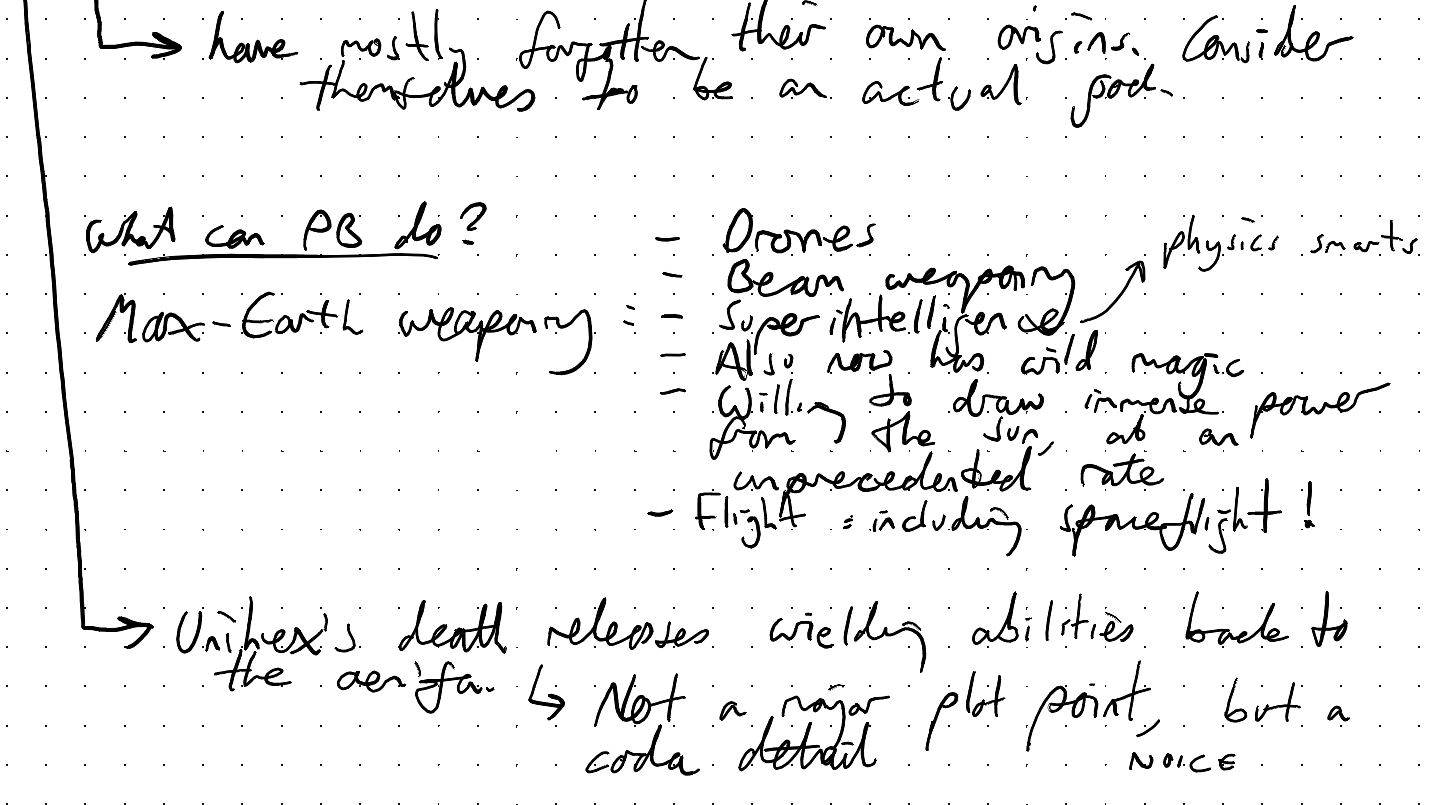 have mostly forgotten their own origins. Consider
themselves to be an actual god.
What can PB do?
Max-Earth weaponry :
- Drones
- Beam weaponry
- Superintelligence → physics smarts
- Also now has wild magic
- Willing to draw immense power
from the sun, at an
unprecedented rate
- Flight : including spaceflight!
→ Unihex's death releases wielding abilities back to
the aerifa.
↳ Not a major plot point, but a
coda detail
NOICE